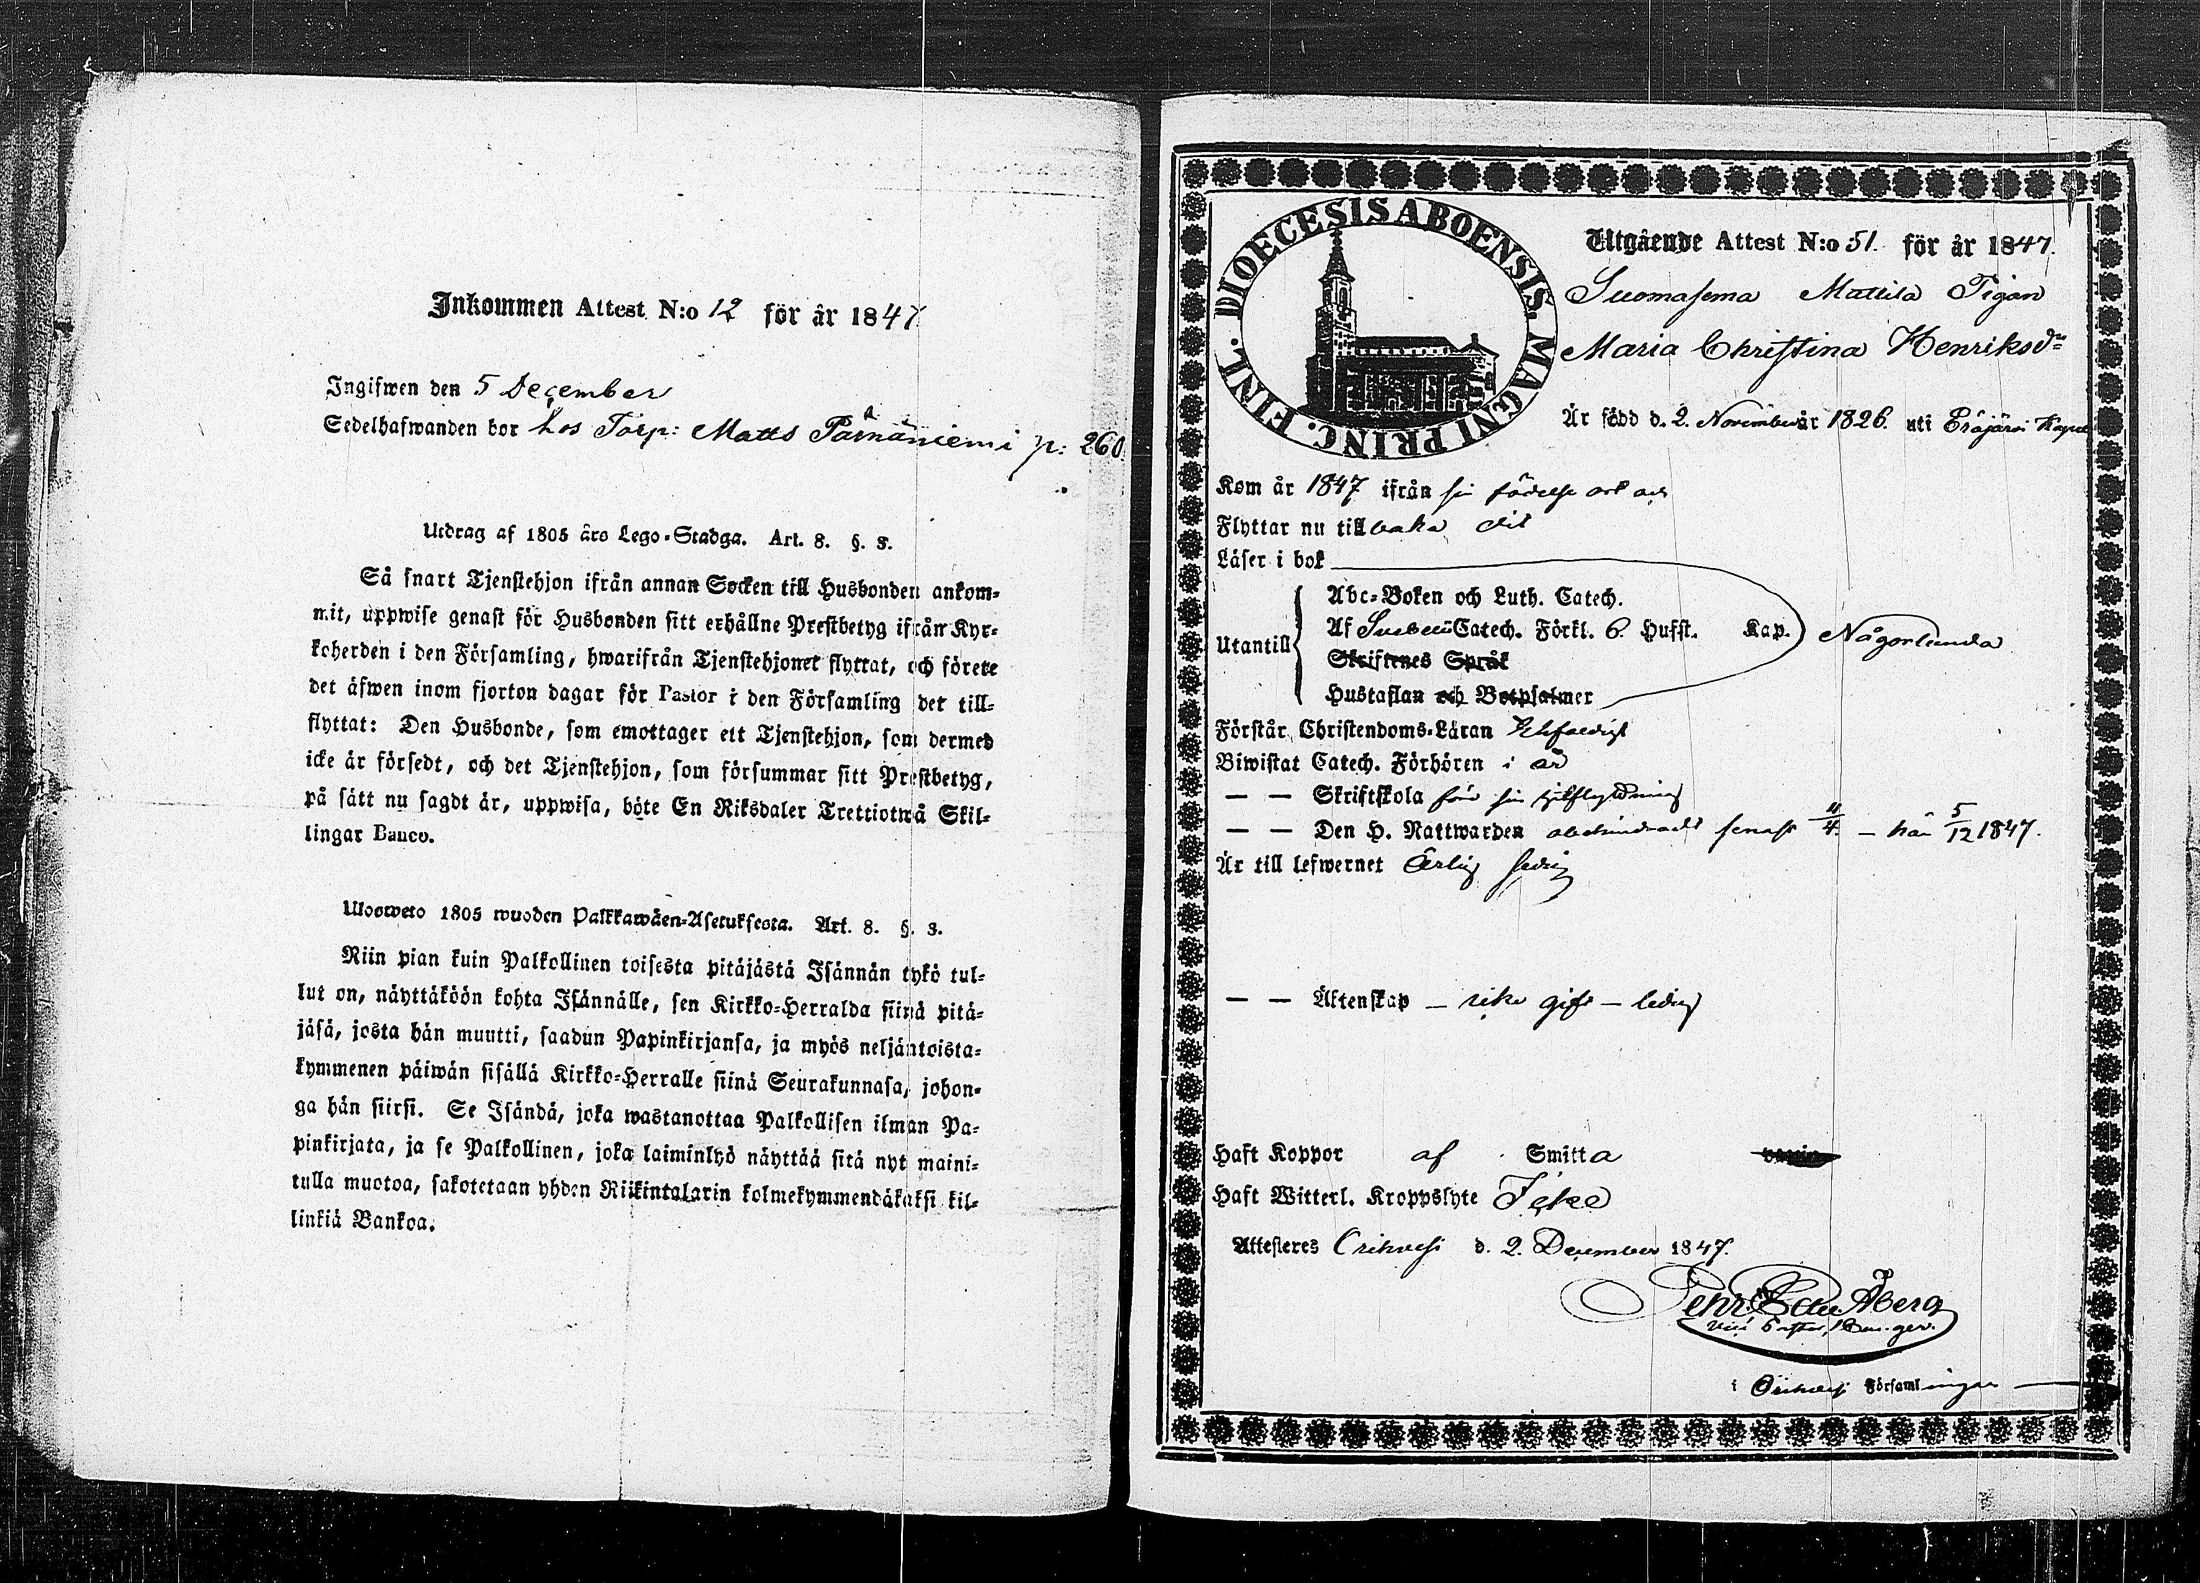 Inkommen Attest N:o 12 för år 1847
Ingifwen den 5 December
Sedelhafwanden bor hos Torp: Matts Pärnäniemi p: 260.
Utdrag af 1805 års Lego-Stadga. Art. 8. §. 3.
Så snart Tjenstehjon ifrån annan Socken till Husbonden ankom-
mit, uppwise genast för Husbonden sitt erhållne Prestbetyg ifrån Kyr-
koherden i den Församling, hwarifrån Tjenstehjonet flyttat, och förete
det äfwen inom fjorton dagar för Pastor i den Församling det till-
flyttat: Den Husbonde, som emottager ett Tjenstehjon, som dermed
icke är försedt, och det Tjenstehjon, som försummar sitt Prestbetyg,
på sätt nu sagdt är, uppwisa, böte En Riksdaler Trettiotwå Skil-
lingar Banco.
Ulosweto 1805 wuoden Palkkawäen-Asetuksesta. Art. 8. §. 3.
Niin pian kuin Palkollinen toisesta pitäjästä Isännän tykö tul-
lut on, näyttäköön kohta Isännälle, sen Kirkko-Herralda siinä pitä-
jäsä, josta hän muutti, saadun Papinkirjansa, ja myös neljäntoista-
kymmenen päiwän sisällä Kirkko-Herralle siinä Seurakunnasa, johon-
ga hän siirsi. Se Isändä, joka wastanottaa Palkollisen ilman Pa-
pinkirjata, ja se Palkollinen, joka laiminlyö näyttää sitä nyt maini-
tulla muotoa, sakotetaan yhden Riikintalarin kolmekymmendäkaksi kil-
linkiä Bankoa.
DIOECESIS ABOENSIS. MAGNI PRINC. FINL.
Utgående Attest N:o 51. för år 1847.
Suomasema Mattila Pigan
Maria Christina Henriksdr
Är född d. 2. November år 1826. uti Eräjärvi Kapell
Kom år 1847 ifrån sin födelse ort och
Flyttar nu tillbaka dit
Läser i bok
Abc-Boken och Luth. Catech.
Utantill Af Svebelii Catech. Förkl. 6. Hufst. Kap. Någorlunda
Skriftenes Språk
Hustaflan och Botpsalmer
Förstår Christendoms-Läran Enfaldigt
Biwistat Catech. Förhören i år
— — Skriftskola för sin
— — Den H. Nattwarden obehindradt senast 4/4 — här 5/12 1847.
Är till lefwernet Ärlig sedig
— — Äktenskap — icke gift — ledig
Haft Koppor af Smitta
Haft Witterl. Kroppslyte Icke
Attesteres Orihvesi d. 2. December 1847.
Pehr Edv Åberg
Vice Pastor,
i Orihvesi Församlingar